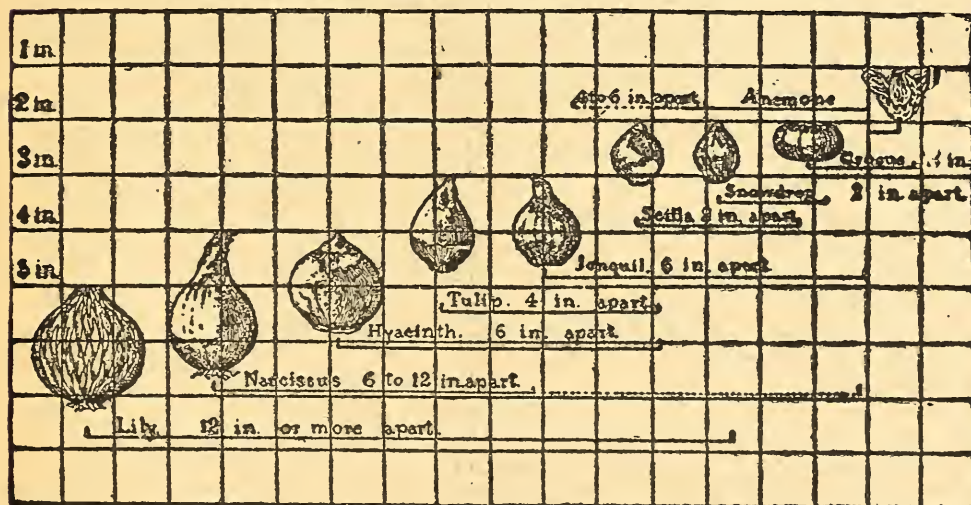 1 in.
2 in.
4 to 6 in. apart Anemone
3 in.
Crocus. in.
Snowdrop 2 in. apart.
4 in.
Scilla 2 in. apart
5 in.
Jonquil. 6 in. apart
Tulip. 4 in. apart.
Hyacinth. 6 in. apart.
Narcissus 6 to 12 in. apart.
Lily. 12 in. or more apart.